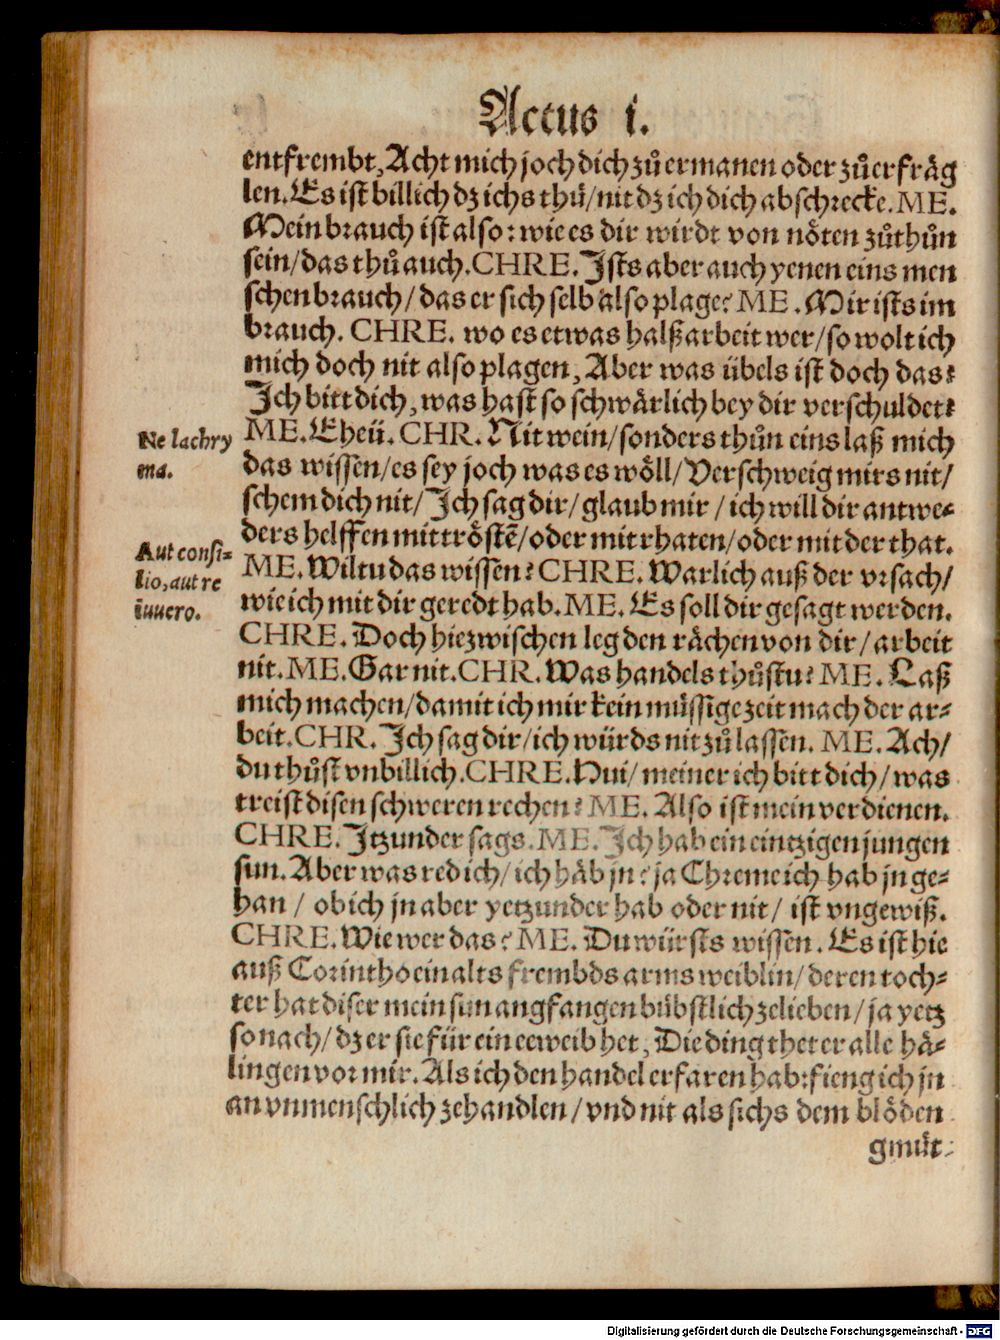 Actus i.
entfrembt, Acht mich joch dich zů ermanen oder zů erfräg
len. Es ist billich dz ichs thů/ nit dz ich dich abschrecke. ME.
Mein brauch ist also: wie es dir wirdt von nöten zůthůn
sein/ das thů auch. CHRE. Ists aber auch yenen eins men
schen brauch/ das er sich selb also plage? ME. Mir ists im
brauch. CHRE. wo es etwas halßarbeit wer/ so wolt ich
mich doch nit also plagen, Aber was übels ist doch das?
Ich bitt dich, was hast so schwärlich bey dir verschuldet?
ME. Eheü. CHR. Nit wein/ sonders thůn eins laß mich
das wissen/ es sey joch was es wöll/ Verschweig mirs nit/
schem dich nit/ Ich sag dir/ glaub mir / ich will dir antwe⸗
ders helffen mit tröstē/ oder mit rhaten/ oder mit der that.
ME. Wiltu das wissen? CHRE. Warlich auß der vrsach/
wie ich mit dir geredt hab. ME. Es soll dir gesagt werden.
CHRE. Doch hiezwischen leg den rächen von dir/ arbeit
nit. ME. Gar nit. CHR. Was handels thůstu? ME. Laß
mich machen/ damit ich mir kein müssige zeit mach der ar⸗
beit. CHR. Ich sag dir/ ich würds nit zů lassen. ME. Ach/
du thůst vnbillich. CHRE. Nui/ meiner ich bitt dich/ was
treist disen schweren rechen? ME. Also ist mein verdienen.
CHRE. Itzunder sags. ME. Ich hab ein eintzigen jungen
sun. Aber was red ich/ ich häb jn? ja Chreme ich hab jn ge⸗
han / ob ich jn aber yetzunder hab oder nit/ ist vngewiß.
CHRE. Wie wer das? ME. Du würsts wissen. Es ist hie
auß Corintho ein alts frembds arms weiblin/ deren toch⸗
ter hat diser mein sun angfangen bübstlich zelieben/ ja yetz
so nach/ dz er sie für ein eeweib het, Die ding thet er alle hä⸗
lingen vor mir. Als ich den handel erfaren hab: fieng ich jn
an vnmenschlich zehandlen/ vnd nit als sichs dem blöden
gmüt⸗
Ne lachry
ma.
Aut consi⸗
lio, aut re
iuuero.
Digitalisierung gefördert durch die Deutsche Forschungsgemeinschaft - DFG